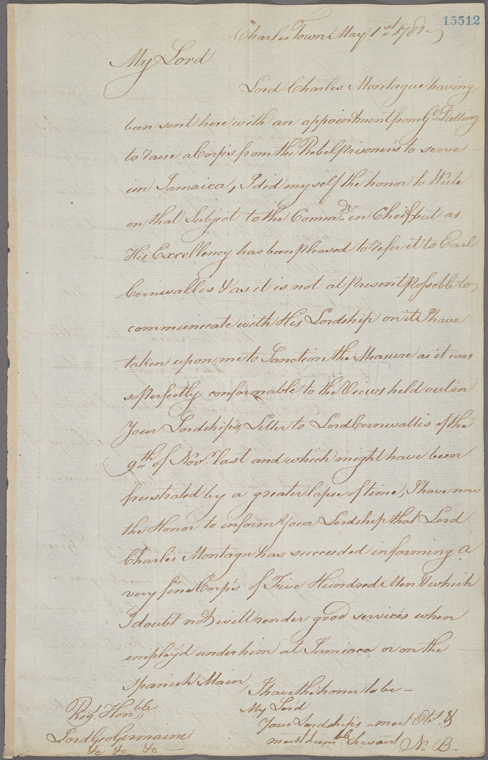 15512
Charles Town May 1st 1781
My Lord
Lord Charles Montague having
been sent here with an appointment from Gl. Dalling
to raise a Corps from the Rebel Prisoners to serve
in Jamaica, I did my self the honor to Write
on that Subject to the Commdr. in Cheif, but as
His Excellency has been pleased to refer it to Earl
Cornwallis & as it is not at present Possoble to
communicate with His Lordship on it I have
taken upon me to Sanction the Measure as it was
so perfectly conformable to the Views held out in
Your Lordship's Letter to Lord Cornwallis of the
9th of Novr. last and which might have been
frustrated by a greater lapse of time, I have now
the Honor to inform Your Lordship that Lord
Charles Montague has succeeded in forming a
very fine Corps of Five Hundred Men & which
I doubt not will render good services when
employ'd under him at Jamiaca or on the
Spanish Main,
I have the honor to be
My Lord
Your Lordships most Obt. &
most humble Servant
N. B.
Rigt. Honble.
Lord Geo Germaine
&c &c &c